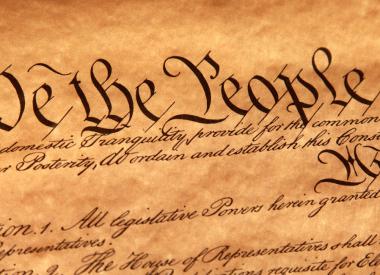 We the People
domestic Tranquility, provide for the common
Posterity, do ordain and establish this Cons
ion. 1. All legislative Powers herein granted
Representatives.
tion. 2. The House of Representatives shall
requisite for Ele